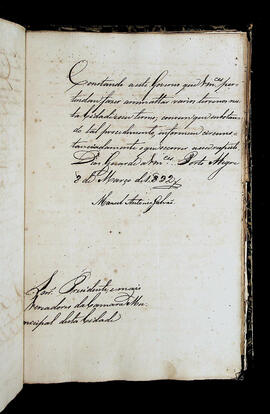 Constando a este Governo que Vm.ces per-
tendem fazer arrematar varios terrenos nes-
ta Cidade e seu termo, convem que sobstando
de tal procedimento, informem circuns-
tanciadamente o que occorre a esse respeito
Deos Guarde a Vm.ces Porto Alegre
8 de Março de 1832
Manoel Antonio Galvão
Snr. Presidente, e mais
Vereadores da Camara Mu-
nicipal desta Cidade